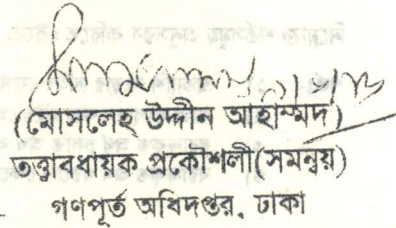 (মোসলেহ উদ্দীন আহাম্মদ)
তত্ত্বাবধায়ক প্রকৌশলী(সমন্বয়)
গণপূর্ত অধিদপ্তর, ঢাকা